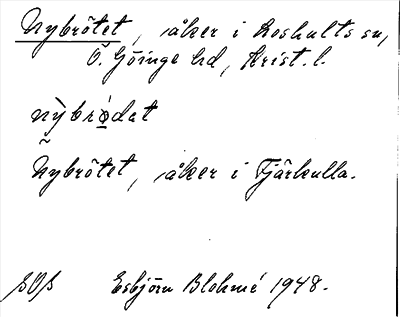 Nybrötet, åker i Loshults sn,
Ö. Göinge hd, Krist. l.
nỳbrǿdat
Nybrötet, åker i Fjärkulla.
Esbjörn Blohmé 1948.